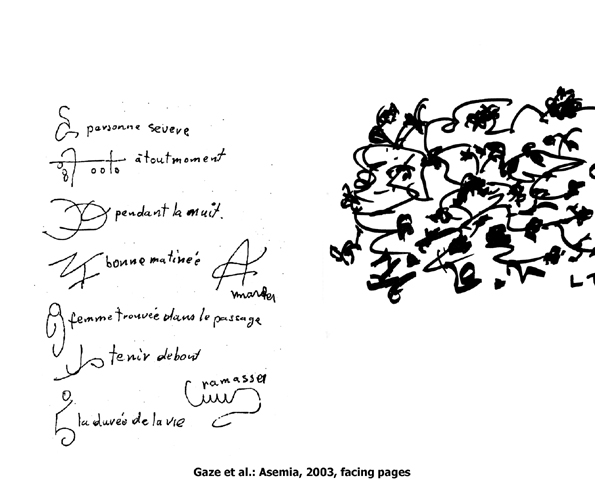 personne sévère
à tout moment
pendant la nuit.
bonne matinée
marcher
femme trouvée dans le passage
tenir debout
ramasser
la durée de la vie
LT
Gaze et al.: Asemia, 2003, facing pages